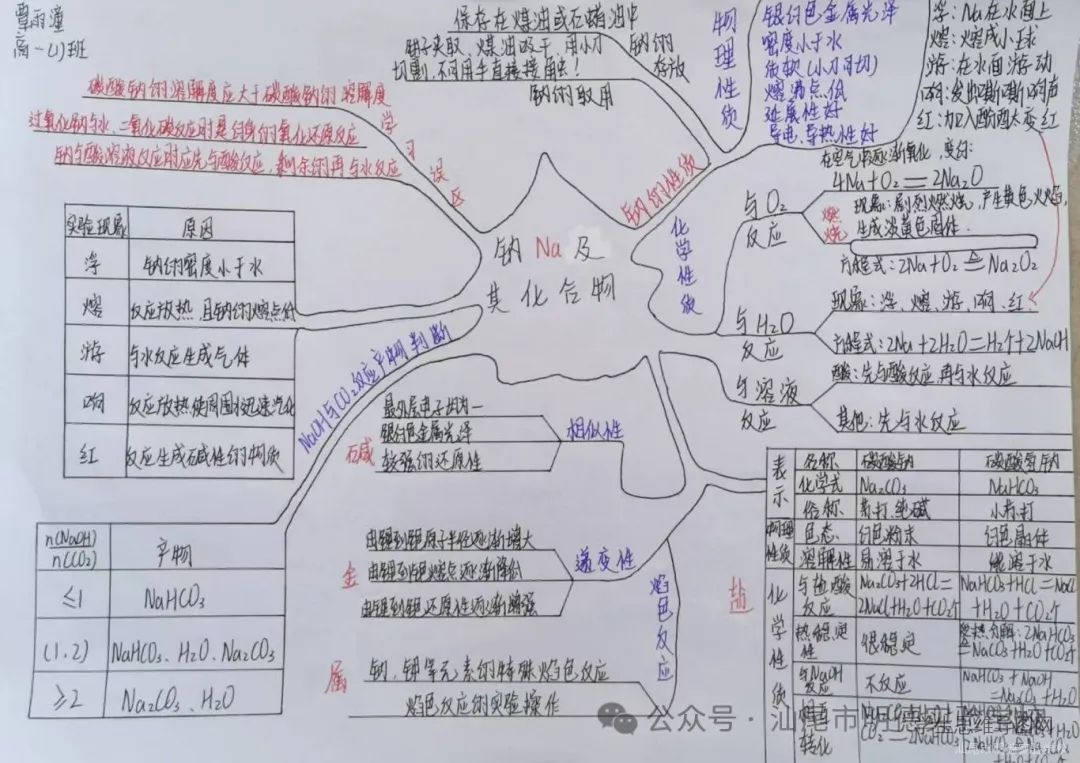 曹雨潼
高一(1)班
保存在煤油或石蜡油中
钠的存放
镊子夹取、煤油吸干、用小刀
切割,不可用手直接接触!
钠的取用
物理性质
银白色金属光泽
密度小于水
质软(小刀可切)
熔沸点低
延展性好
导电、导热性好
浮:Na在水面上
熔:熔成小球
游:在水面游动
响:发出嘶嘶响声
红:加入酚酞变红
碳酸钠的溶解度应大于碳酸钠的溶解度
过氧化钠与水、二氧化碳反应时是自身的氧化还原反应
钠与酸溶液反应时应先与酸反应,剩余的再与水反应
学习误区
钠的性质
钠Na及
其化合物
化学性质
与O2反应
在空气中逐渐氧化,变白:
4Na+O2=2Na2O
燃烧
现象:剧烈燃烧,产生黄色火焰,
生成淡黄色固体.
方程式:2Na+O2≜Na2O2
与H2O反应
现象:浮、熔、游、响、红
方程式:2Na+2H2O=H2↑+2NaOH
与溶液反应
酸:先与酸反应,再与水反应
其他:先与水反应
实验现象 原因
浮 钠的密度小于水
熔 反应放热,且钠的熔点低
游 与水反应生成气体
响 反应放热,使周围水迅速汽化
红 反应生成碱性的物质
NaOH与CO2反应产物判断
n(NaOH)/n(CO2) 产物
≤1 NaHCO3
(1.2) NaHCO3、H2O、Na2CO3
≥2 Na2CO3、H2O
碱金属
相似性
最外层电子均为一
银白色金属光泽
较强的还原性
递变性
由锂到铯原子半径逐渐增大
由锂到铯熔点逐渐降低
由锂到铯还原性逐渐增强
焰色反应
钠、钾等元素的特殊焰色反应
焰色反应的实验操作
盐
表示 名称 碳酸钠 碳酸氢钠
化学式 Na2CO3 NaHCO3
俗称 苏打、纯碱 小苏打
物理性质 色态 白色粉末 白色晶体
溶解性 易溶于水 能溶于水
化学性质 与盐酸反应 Na2CO3+2HCl=2NaCl+H2O+CO2↑ NaHCO3+HCl=NaCl+H2O+CO2↑
热稳定性 很稳定 受热分解:2NaHCO3≜Na2CO3+H2O+CO2↑
与NaOH反应 不反应 NaHCO3+NaOH=Na2CO3+H2O
相互转化
CO2=2NaHCO3
公众号·汕尾市